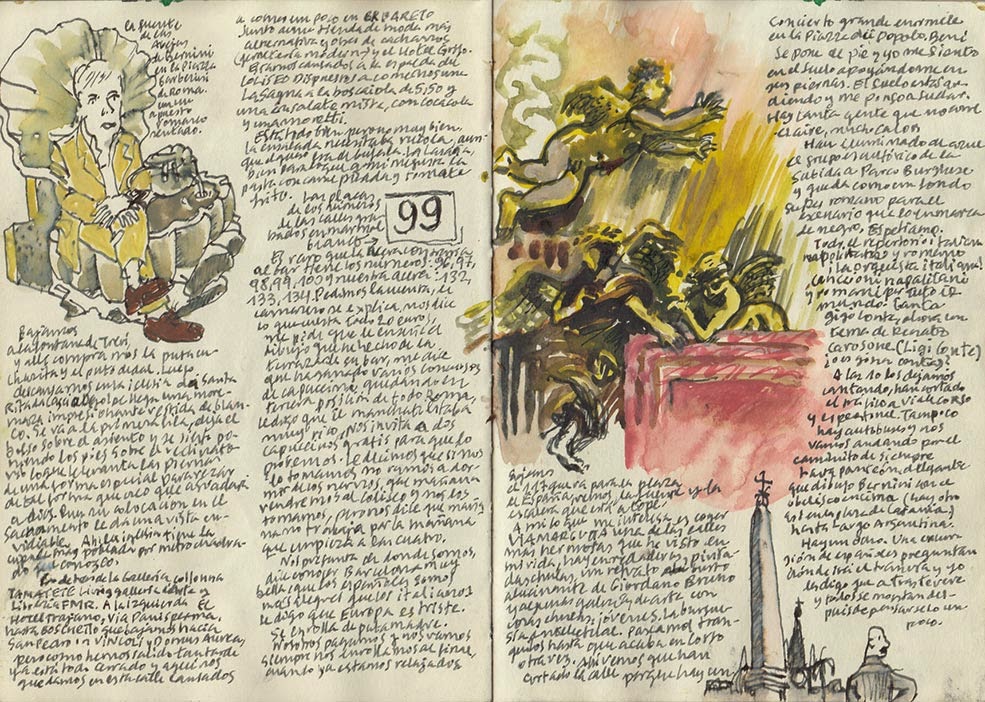 la fuente
de las
abejas
de Bernini
en la Piazza
Barberini
de Roma.
con un
apuesto
romano
sentado.
Bajamos
a la fontana de Trevi,
y alli compra mos la puta cu-
charita y el puto dedal. Luego
descansamos en una iglesia de Santa
Rita en casa al golpe llega una mon-
ja impresionante vestida de blan-
co. Se va a la primera fila, deja el
bolso sobre el asiento y se sienta po-
niendo los pies sobre el reclinato-
rio lo que le levanta las piernas
de una forma especial para rezar
de tal forma que creo que agradará
a dios. Pues su colocación en el
le da una vista en-
vidiable. Ahi la iglesia tiene la
cúpula más poblada por metro cuadra-
do que conozco.
Galleria Colonna
TAMATETE Living gallery
Libreria FMR. A la izquierda EL
Hotel Trajano, Via Panisperna,
hasta BOSCHETTO que bajamos hacia
San Pedro in VINCOLI y Domus Aurea,
pero como hemos salido tan tarde
ya está todo cerrado y aqui nos
quedamos en esta calle cansados
a comer un poco en ER PARETO
junto a una tienda de moda más
alternativa y otra de cacharros
(ferretería moderna) y el Hotel Grifo.
Estamos cansados a la espalda del
COLISEO Dispuestos a comernos una
lasagna a la boscaiola de 5,50 y
una ensalate mista, con cocacola
y una moretti.
Está todo bien pero no muy bien.
La ensalada necesitaba rucola, aun-
que el queso era de bufala. La lasaña,
bien para los que a mi me gusta la
pasta con carne picada y tomate
frito. Las placas
de los números
de las calles gra-
bados en marmol
blanco →
99
El raro que la acera contigua
al bar tiene los números: 96, 97
98, 99, 100 y nuestra acera: 132,
133, 134. Pedimos la cuenta, el
camarero se explica, nos dice
lo que cuesta todo 20 euros,
me pide que le enseñe el
dibujo que he hecho de la
terraza de su bar, me dice
que ha ganado varios concursos
de capuccino, quedando en
tercera posición de todo Roma,
le digo que il manchiato estaba
muy rico, nos invita a dos
capuccinos gratis para que lo
probemos. Le decimos que si nos
lo tomamos no vamos a dor-
mir de los nervios, que mañana
vendremos al Coliseo y nos los
tomamos, pero nos dice que maña-
na trabaja por la mañana
que empieza a las cuatro.
Nos pregunta de donde somos,
dice conocer Barcelona muy
bella, que los españoles somos
más alegres que los italianos
le digo que Europa es triste.
Se enrolla de putamadre.
Nosotros pagamos y nos vamos
siempre nos enrollamos al final,
cuando ya estamos relajados
el 117 que va para la plaza
de España vemos la fuente y la
escalera que está a tope.
A mi lo que me interesa es coger
VIA MARGUTTA una de las calles
más hermosas que he visto en
mi vida, hay enredaderas, pinta-
das chulas, un retrato de burro
alucinante de Giordano Bruno
y algunas galerías de arte con
cosas chulas: jóvenes, la burgue-
sía intelectual. Paramos tran-
quilos hasta que acaba en Corso
otra vez. Ahi vemos que han
cortado la calle porque hay un
concierto grande enorme
en la Piazza del Popolo. Beni
se pone de pie y yo me siento
en el suelo apoyándome en
sus piernas. El suelo está ar-
diendo y me pongo a sudar.
Hay tanta gente que no corre
el aire, mucho calor.
Han iluminado de azul
el grupo escultórico de la
subida a Parco Burghese
y queda como un fondo
super romano para el
escenario que lo enmarca
de negro. Esperamos.
Todo el repertorio italiano
napolitano y romano
¡La orquesta italiana!
canzioni napolitani
y romani per tuto il
mundo. Canta
gigo lonte, ahora un
tema de Renato
Carosone. (Ligi Conte)
A las 10 los dejamos
cantando, han cortado
el tráfico a via Corso
y es peatonal. Tampoco
hay autobus y nos
vamos andando por el
caminito de siempre
hacia panteón, elegante
que dibujo Bernini con el
obelisco encima (hay otro
igual en Catania)
hasta Largo Argentina.
Hay un 8cho. Una excur-
sión de españoles preguntan
dónde irá el tranvía y yo
les digo que a trastevere
y todos se montan des-
pués de pensarselo un
poco.